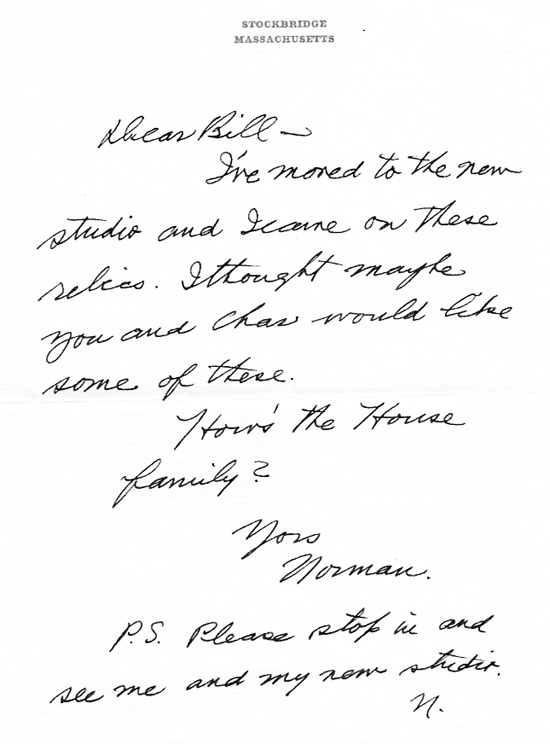 STOCKBRIDGE
MASSACHUSETTS
Dear Bill —
I've moved to the new
studio and I came on these
relics. I thought maybe
you and Chas would like
some of these.
How's the House
family?
Yors
Norman.
P.S. Please stop in and
see me and my new studio.
N.